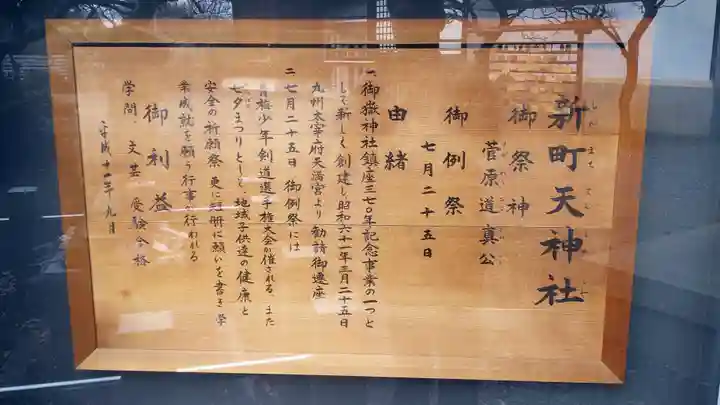 新町天神社
しんまちてんじんしゃ
御祭神
菅原道真公
御例祭
七月二十五日
由緒
一、御嶽神社鎮座三七〇年記念事業の一つと
して新しく創建し昭和六十一年三月二十五日
九州太宰府天満宮より勧請御遷座
二、七月二十五日 御例祭には
青梅少年剣道選手権大会が催される、また
七夕まつりとして、地域子供達の健康と
安全の祈願祭 更に短冊に願いを書き 学
業成就を願う行事が行われる
御利益
学問 文芸 受験合格
平成十四年九月